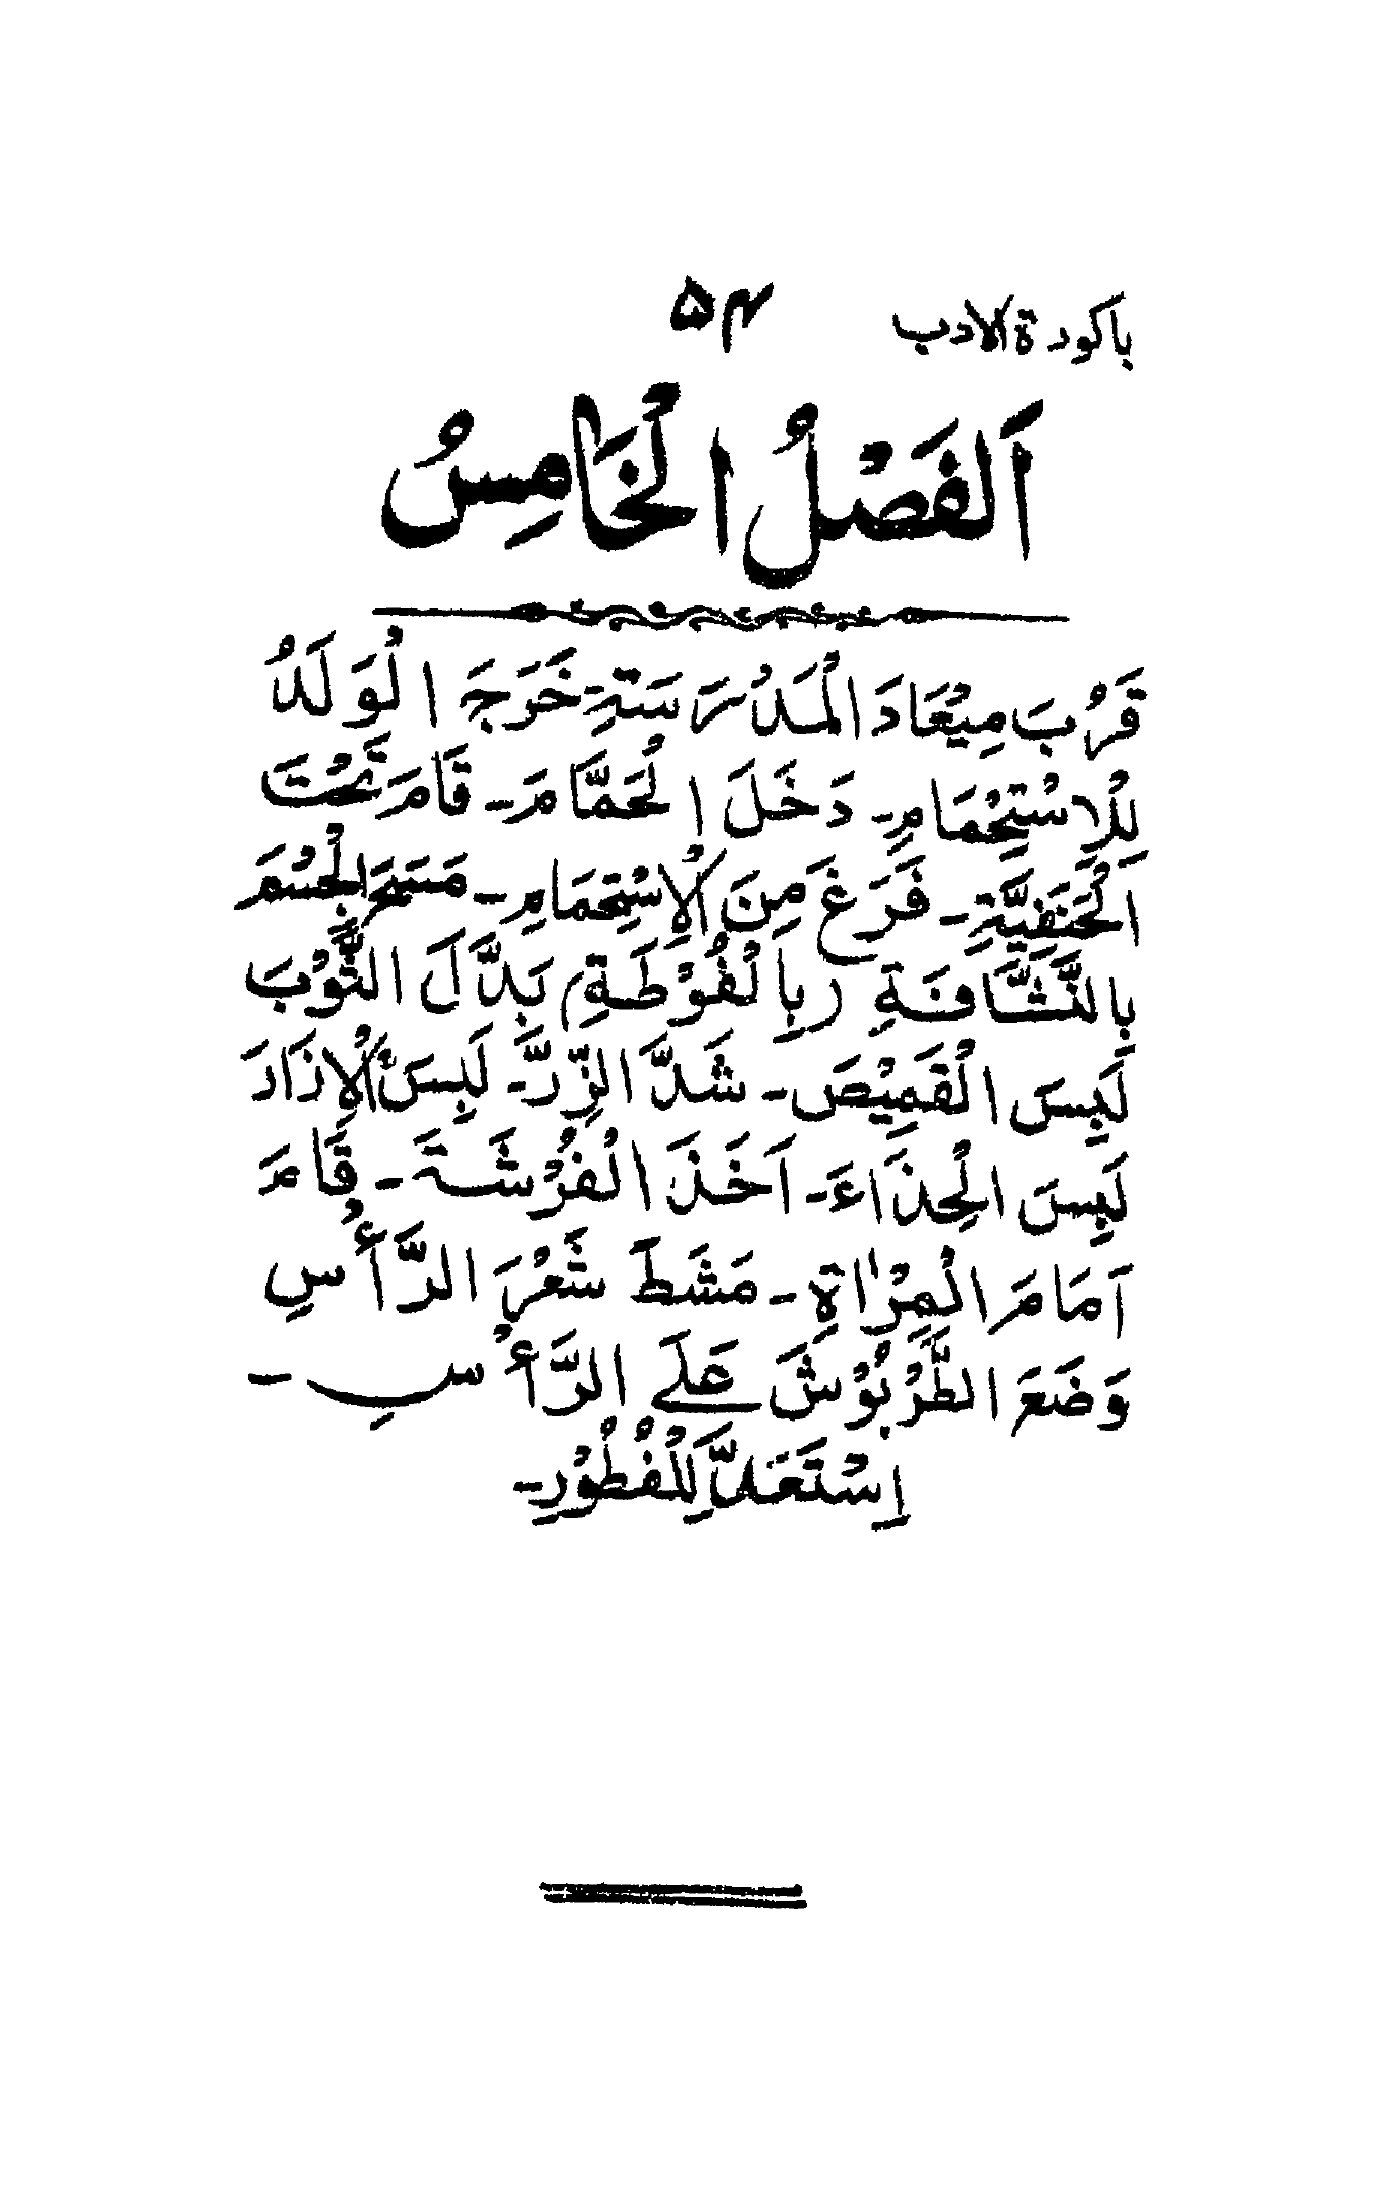 باكورة الادب ۵۴
اَلْفَصْلُ الْخَامِسُ
قَرُبَ مِيْعَادَ الْمَدْرَسَةِ خَرَجَ الْوَلَدُ
لِلْاسْتِحْمَامِ - دَخَلَ الْحَمَّامَ - قَامَ تَحْتَ
اَلْحَنَفِيَّةِ - فَرَغَ مِنَ الْاِسْتِحْمَامِ - مَسَحَ الْجِسْمَ
بِالنَّشَّافَةِ (بِالْفُوْطَةِ) بَدَّلَ الثَّوْبَ
لَبِسَ الْقَمِيْصَ - شَدَّ الزِّرَّ - لَبِسَ الْاِزَارَ
لَبِسَ الْحِذَاءَ - اَخَذَ الْفُرْشَةَ - قَامَ
اَمَامَ الْمِرْاٰةِ - مَشَطَ شَعْرَ الرَّأْسِ
وَضَعَ الطَّرْبُوْشَ عَلَى الرَّأْسِ -
اِسْتَعَدَّ لِلْفُطُوْرِ -